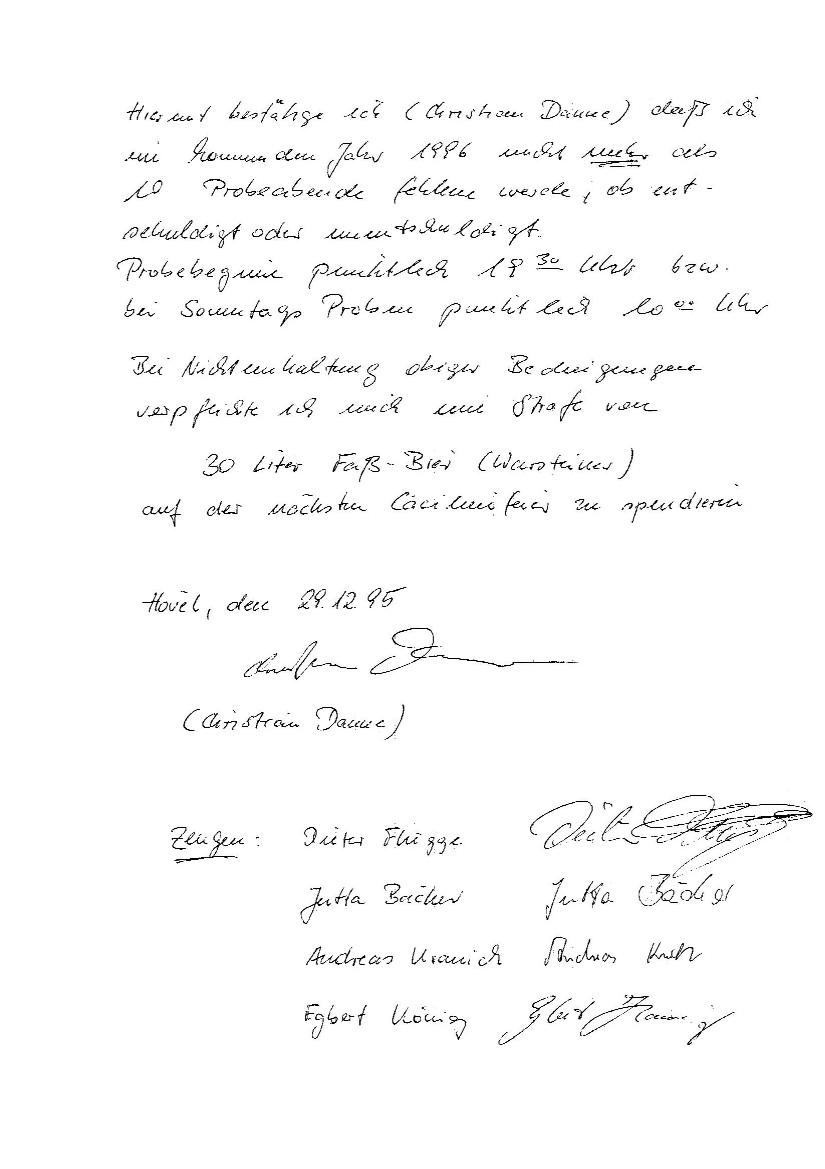 Hiermit bestätige ich (Christian Danne) daß ich
im kommenden Jahr 1996 nicht mehr als
10 Probeabende fehlen werde, ob ent-
schuldigt oder unentschuldigt.
Probebeginn pünktlich 19 30 Uhr bzw.
bei Sonntags Proben pünktlich 10 00 Uhr
Bei Nichteinhaltung obiger Bedingungen
verpflichte ich mich eine Strafe von
30 Liter Faß-Bier (Warsteiner)
auf der nächsten Cäcilienfeier zu spendieren
Hövel, den 29.12.95
(Christian Danne)
Zeugen: Dieter Flügge
Jutta Bäcker Jutta Bäcker
Andreas Kranich Andreas
Egbert König Egbert